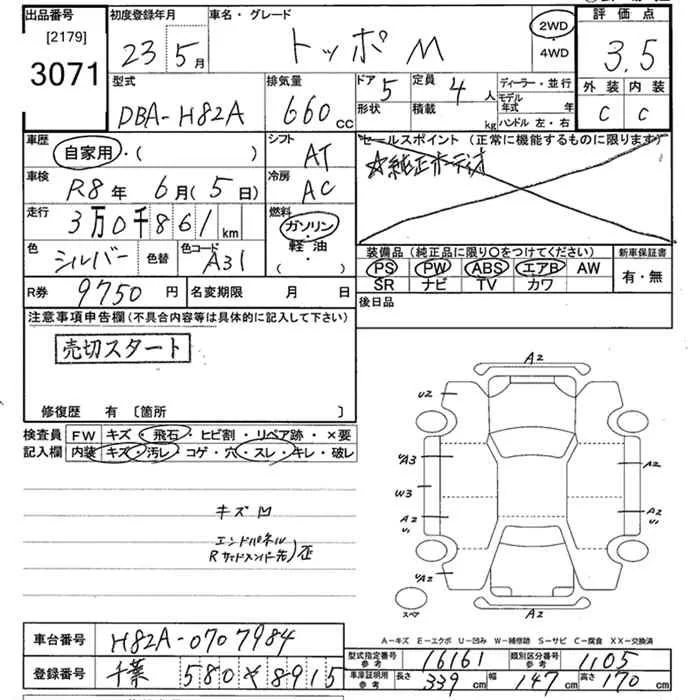 出品番号
[2179]
3071
初度登録年月
23年5月
車名・グレード
トッポM
2WD
・
4WD
評価点
3.5
外装 内装
C C
型式
DBA-H82A
排気量
660cc
ドア 5
形状
定員 4人
積載 kg
ディーラー・並行
モデル年式 年
ハンドル 左・右
車歴
自家用・( )
シフト
AT
車検
R8年6月(5日)
冷房
AC
走行
3万0千861km
燃料
ガソリン
・
軽油
( )
色
シルバー
色替
色コード
A31
セールスポイント(正常に機能するものに限ります)
☆純正オーディオ
装備品(純正品に限り〇をつけてください)
PS PW ABS エアB AW
SR ナビ TV カワ
新車保証書
有・無
R券 9750円
名変期限 月 日
後日品
注意事項申告欄(不具合内容等は具体的に記入して下さい)
売切スタート
修復歴 有 〔箇所 〕
検査員記入欄
FW キズ・飛石・ヒビ割・リペア跡・×要
内装 キズ・汚レ・コゲ・穴・スレ・キレ・破レ
キズ凹
エンドパネル
Rサイドメンバー先)歪
A2
U2
A3
W3
A2
U1
UA2
A2
A2
U1
A2
スペア
A-キズ E-エクボ U-凹み W-補修跡 S-サビ C-腐食 XX-交換済
車台番号
H82A-0707984
登録番号
千葉 580 そ 8915
型式指定番号
参考
16161
類別区分番号
参考
1105
車庫証明用
参考
長さ 339cm
幅 147cm
高さ 170cm